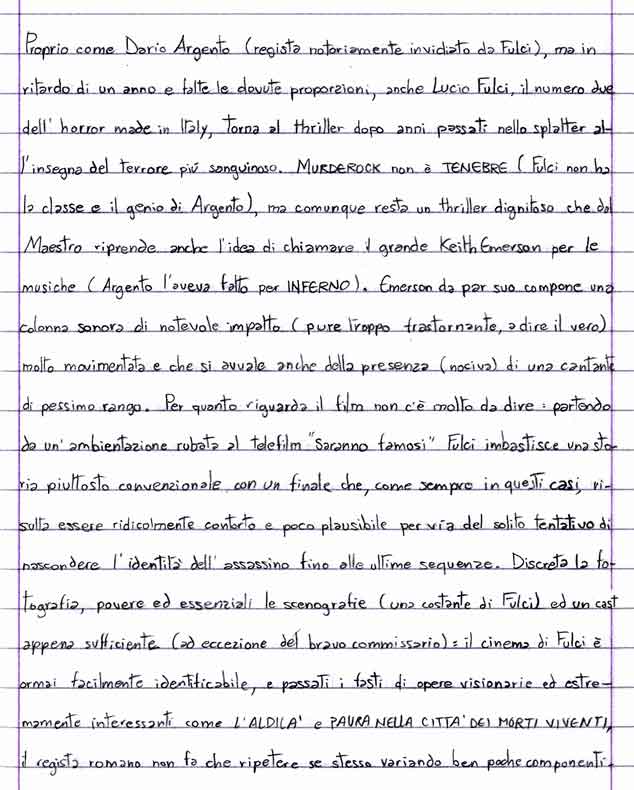 Proprio come Dario Argento (regista notoriamente invidiato da Fulci), ma in
ritardo di un anno e fatte le dovute proporzioni, anche Lucio Fulci, il numero due
dell'horror made in Italy, torna al thriller dopo anni passati nello splatter al-
l'insegna del terrore più sanguinoso. MURDEROCK non è TENEBRE (Fulci non ha
la classe e il genio di Argento), ma comunque resta un thriller dignitoso che dal
Maestro riprende anche l'idea di chiamare il grande Keith Emerson per le
musiche (Argento l'aveva fatto per INFERNO). Emerson da par suo compone una
colonna sonora di notevole impatto (pure troppo frastornante, a dire il vero)
molto movimentata e che si avvale anche della presenza (nociva) di una cantante
di pessimo rango. Per quanto riguarda il film non c'è molto da dire: partendo
da un'ambientazione rubata al telefilm "Saranno famosi" Fulci imbastisce una sto-
ria piuttosto convenzionale con un finale che, come sempre in questi casi, ri-
sulta essere ridicolmente contorto e poco plausibile per via del solito tentativo di
nascondere l'identità dell'assassino fino alle ultime sequenze. Discreta la fo-
tografia, povere ed essenziali le scenografie (una costante di Fulci) ed un cast
appena sufficiente (ad eccezione del bravo commissario): il cinema di Fulci è
ormai facilmente identificabile, e passati i fasti di opere visionarie ed estre-
mamente interessanti come L'ALDILA' e PAURA NELLA CITTA' DEI MORTI VIVENTI,
il regista romano non fa che ripetere se stesso variando ben poche componenti.